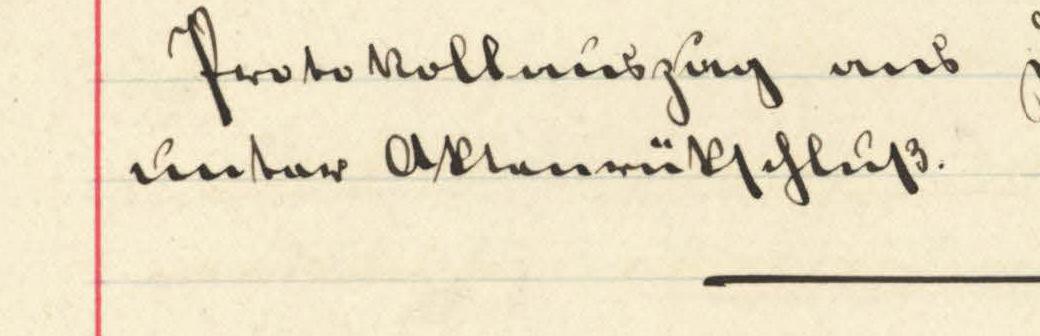 Protokollauszug aus
unter Aktenrükschluß.